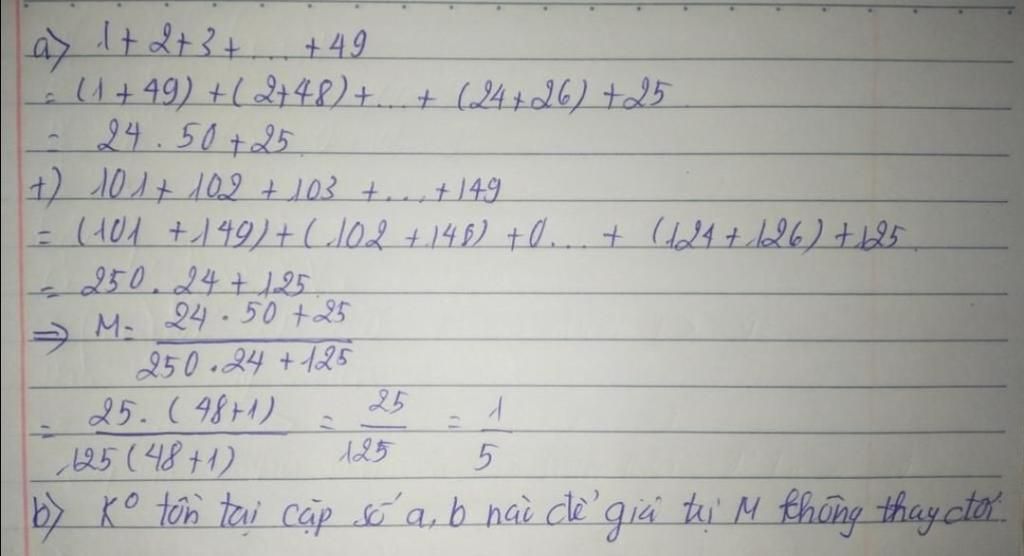 a) 1 + 2 + 3 + ... + 49
= (1 + 49) + (2 + 48) + ... + (24 + 26) + 25
= 24 . 50 + 25
+) 101 + 102 + 103 + ... + 149
= (101 + 149) + (102 + 148) + 0... + (124 + 126) + 125
= 250 . 24 + 125
⇒ M = 24 . 50 + 25 / 250 . 24 + 125
= 25 . (48 + 1) / 125 (48 + 1) = 25 / 125 = 1 / 5
b) K° tồn tại cặp số a, b nài để giá trị M không thay đổi.